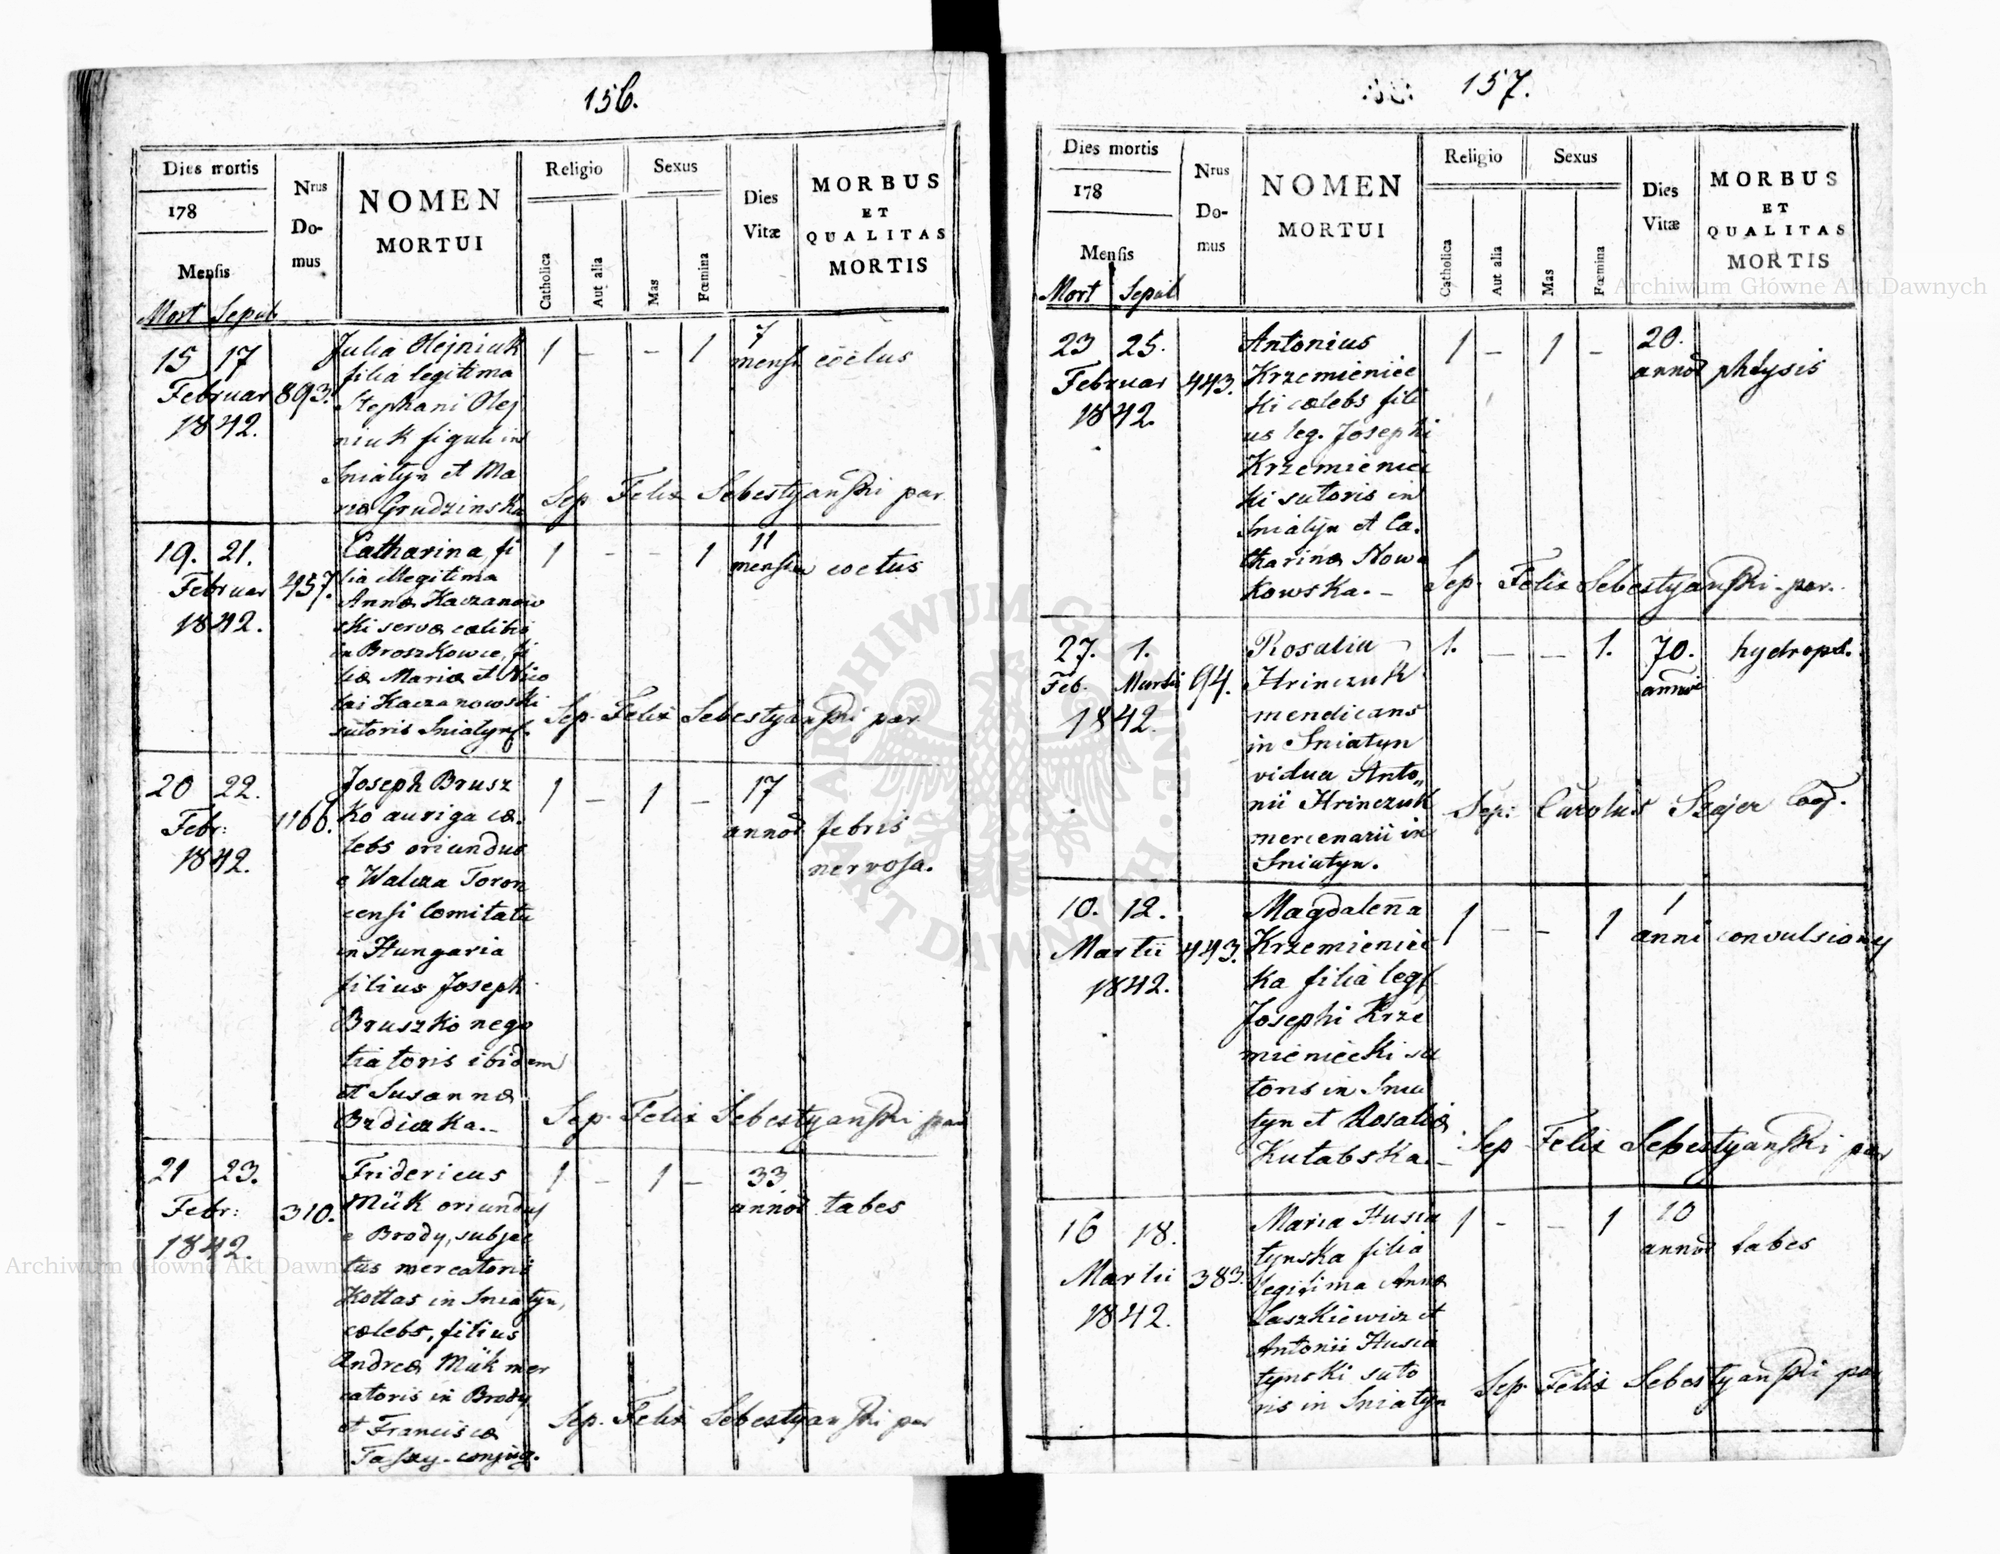 156.
Dies mortis
178
Mensis
Mort Sepul
Nrus
Do-
mus
NOMEN
MORTUI
Religio
Catholica
Aut alia
Sexus
Mas
Fœmina
Dies
Vitæ
MORBUS
ET
QUALITAS
MORTIS
15 17
Februar 893.
1842.
Julia Olejniuk
filia legitima
Stephani Olej
niuk figuli in
Sniatyn et Ma
riæ Grudzinska
1 – – 1
7
mensi
coctus
Sep. Felix Sebestyanski par.
19. 21.
Februar 457.
1842.
Catharina fi
lia illegitima
Annæ Kaczanow
ski servæ cælibis
in Broszkowce, fi
liæ Mariæ et Nico
lai Kaczanowski
sutoris Sniatyn.
1 – – 1
11
mensiu
coctus
Sep. Felix Sebestyanski par
20 22.
Febr: 1166.
1842.
Joseph Brusz
ko auriga cæ
lebs oriundus
e Walcza Toron
censi Comitatu
in Hungaria
filius Joseph
Bruszko nego
tiatoris ibidem
et Susannæ
Brdiczka.–
1 – 1 –
17
annor
febris
nervosa.
Sep. Felix Sebestyanski par
21 23.
Febr: 310.
1842.
Fridericus
Mük oriundus
e Brody, subjec
tus mercatoris
Kottas in Sniatyn,
cælebs, filius
Andreæ Mük mer
catoris in Brody
et Franciscæ
conjug.
1 – 1 –
33
annor
tabes
Sep. Felix Sebestyanski par
157.
Dies mortis
178
Mensis
Mort Sepul
Nrus
Do-
mus
NOMEN
MORTUI
Religio
Catholica
Aut alia
Sexus
Mas
Fœmina
Dies
Vitæ
MORBUS
ET
QUALITAS
MORTIS
23 25.
Februar 443.
1842.
Antonius
Krzemieniec
ki cælebs fili
us leg. Josephi
Krzemieniec
ki sutoris in
Sniatyn et Ca.
tharinæ Nowa
kowska. –
1 – 1 –
20.
annor
phtysis
Sep. Felix Sebestyanski par.
27. 1.
Feb. Martii 94.
1842.
Rosalia
Hrinczuk
mendicans
in Sniatyn
vidua Anto„
nii Hrinczuk
mercenarii in
Sniatyn.
1. – – 1.
70.
annor
hydrops.
Sep: Carolus Szajer Coop.
10. 12.
Martii 443.
1842.
Magdalena
Krzemieniec
ka filia leg.
Josephi Krze
mieniecki su
toris in Snia
tyn et Rosaliæ
Kutabska. –
1 – – 1
1
anni
convulsiony
Sep Felix Sebestyanski par
16 18.
Martii 383.
1842.
Maria Husia
tynska filia
legitima Annæ
Laszkiewicz et
Antonii Husia
tynski suto
ris in Sniatyn
1 – – 1
10
annor
tabes
Sep. Felix Sebestyanski par
Archiwum Główne Akt Dawnych
Archiwum Główne Akt Dawnych
ARCHIWUM GŁÓWNE AKT DAWNYCH